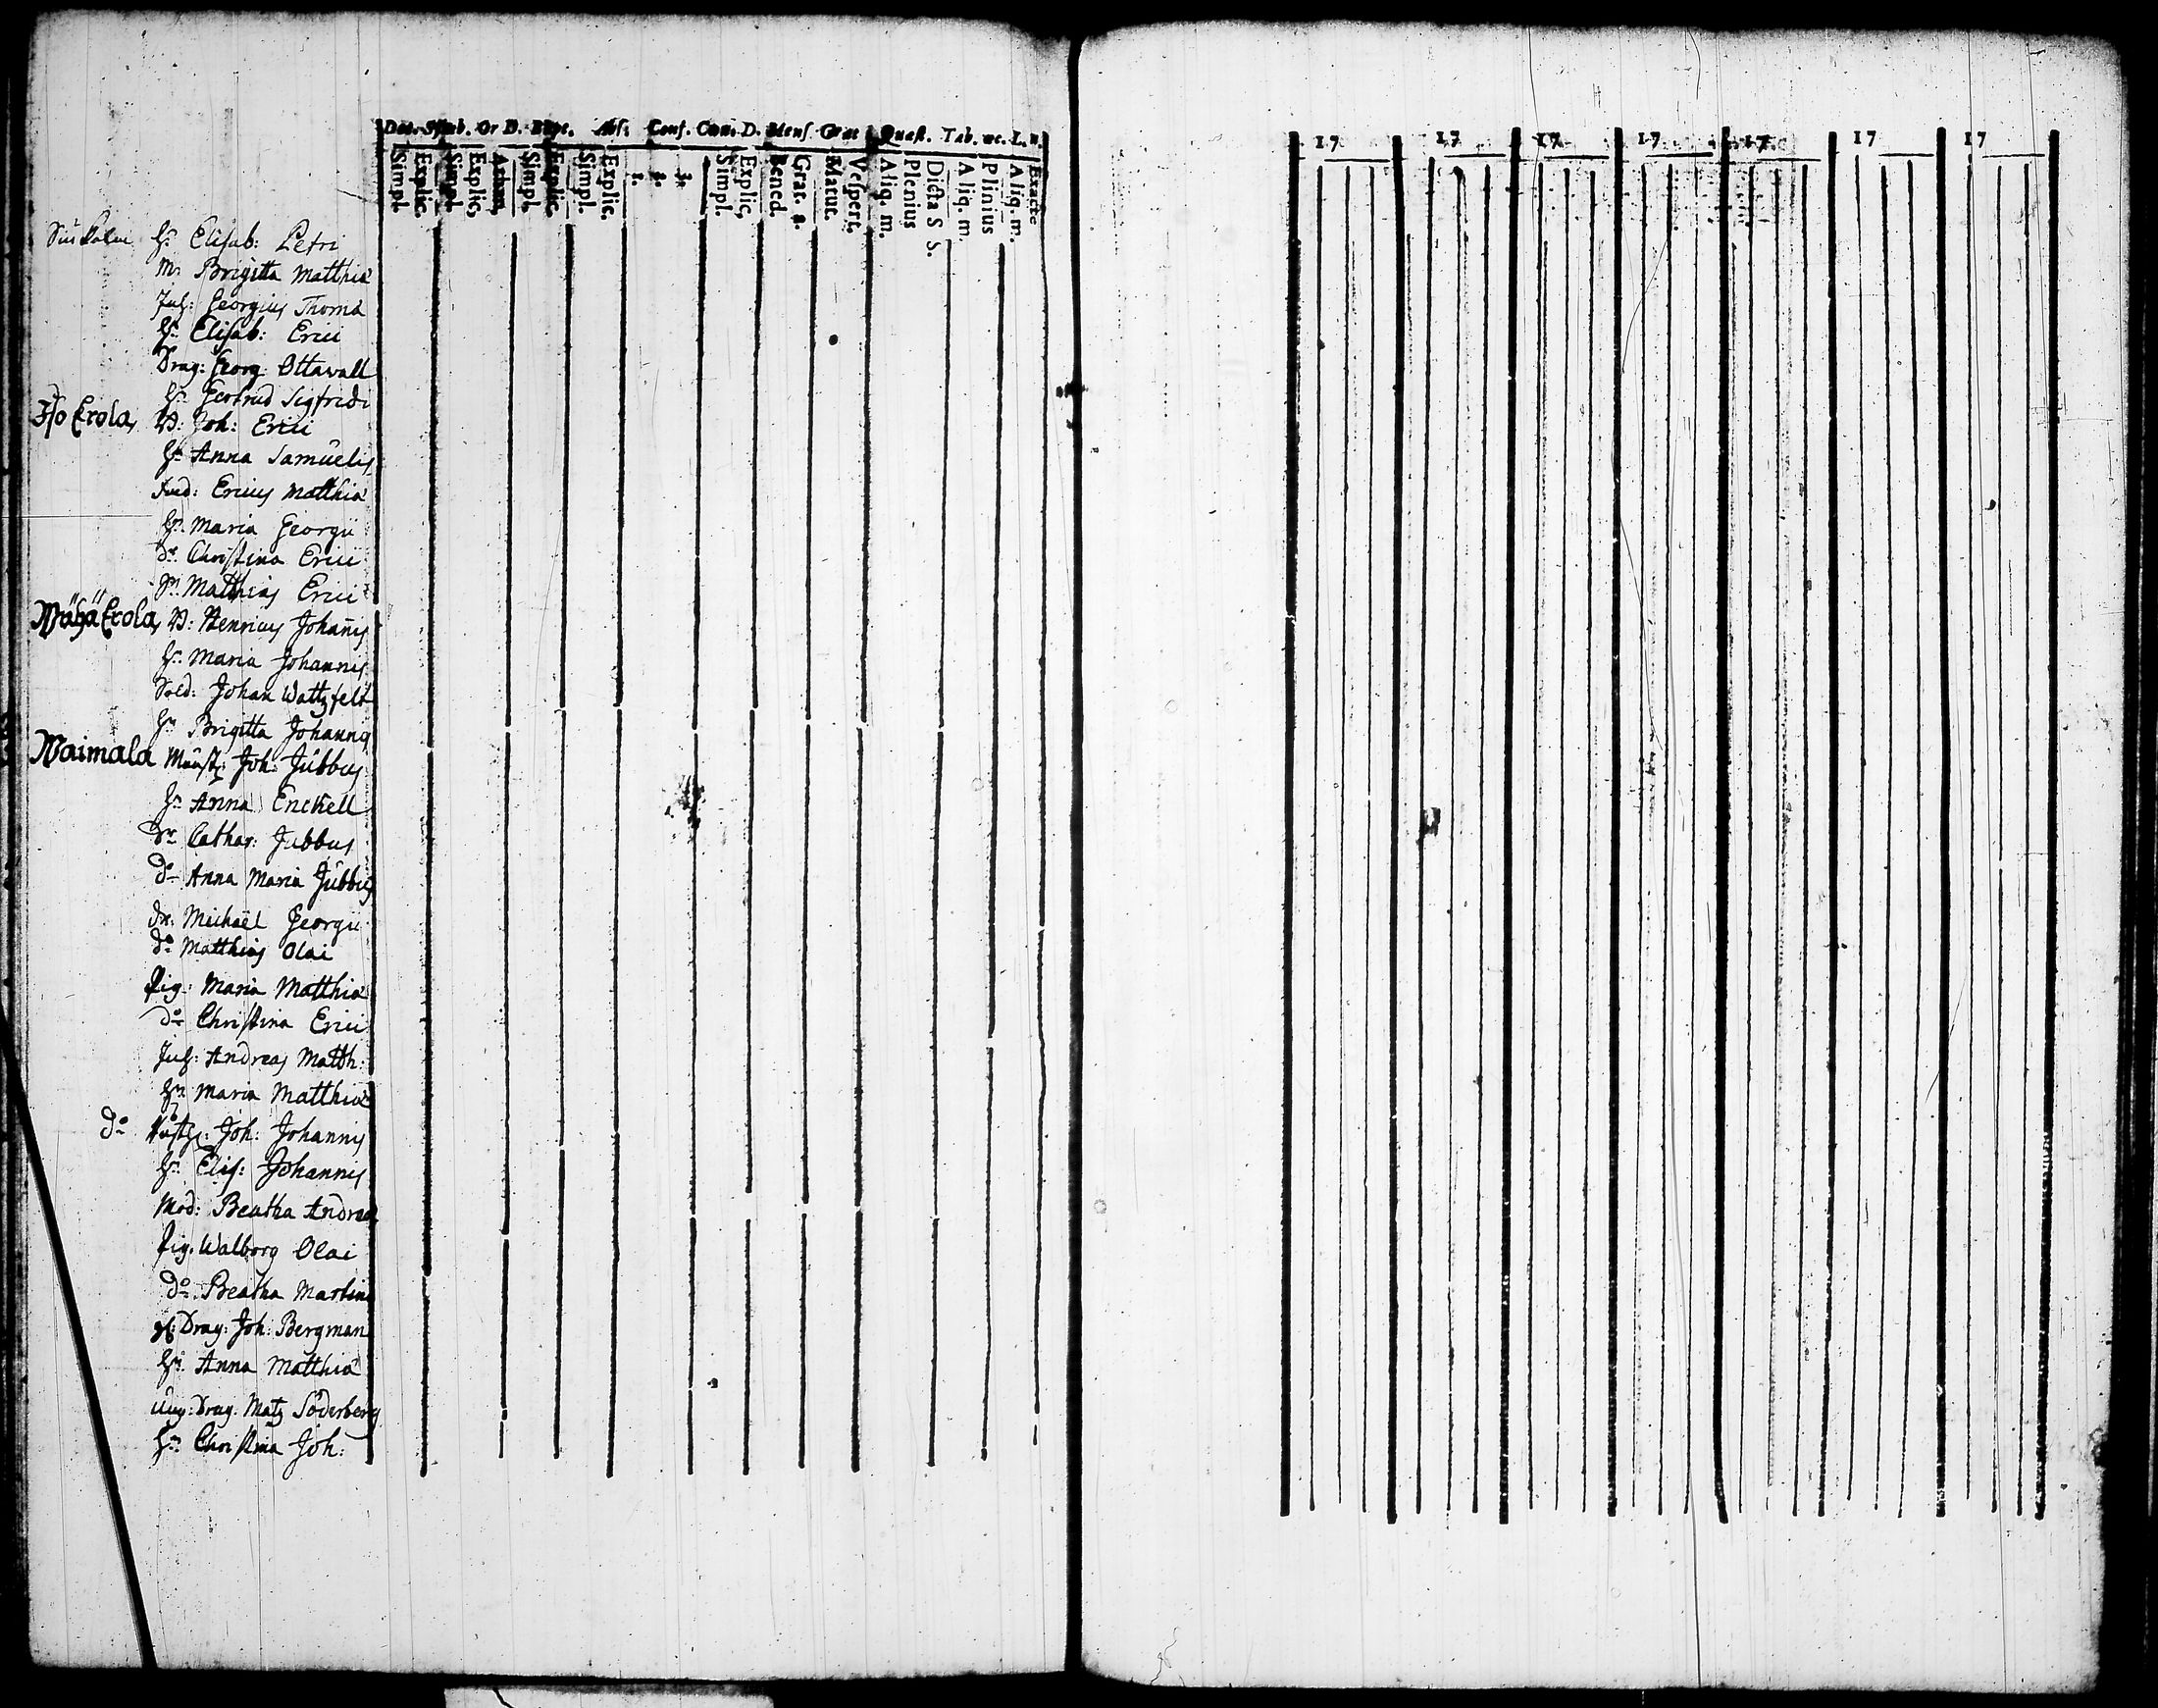 Dec. Symb. Or D. Bapt. Abs: Conf. Cœn. D. Mens. Grat Quæst. Tab. œc. L. n.
Simpl. Explic. Simpl. Explic. Athan. Simpl. Explic. Simpl. Explic. 1. 2. 3. Simpl. Explic. Bened. Grat. a. Matut. Vespert. Aliq. m. Plenius Dicta S S. Aliq. m. Plinius Aliq. m. Exacte
17 17 17 17 17 17 17
Hu Elisab: Petri
M: Brigitta Matthiæ
Inh: Georgius Thomæ
Hu Elisab: Erici
Drag: Georg Ottavall
Hu Gertrud Sigfridi
Iso Erola, B: Joh: Erici
Hu Anna Samuelis
Ericus Matthiæ
Hu Maria Georgii
do Christina Erici
Matthias Erici
Wähä Erola, B: Henricus Johanis
Hu Maria Johannis
Sold: Johan Wattzfelt
Hu Brigitta Johannis
Waimala Joh: Jübbus
Hu Anna Enckell
Dr Cathar: Jubbus
do Anna Maria Jübbus
Dr: Michaël Georgii
do Matthias Olai
Pig: Maria Matthiæ
do Christina Erici
Inh: Andreas Matth:
Hu Maria Matthiæ
do Joh: Johannis
Hu Elis: Johannis
Mod: Beatha Andreæ
Pig. Walborg Olai
do Beatha Martini
Drag: Joh: Bergman
Hu Anna Matthiæ
Drag. Matz Söderberg
Hu Christina Joh: